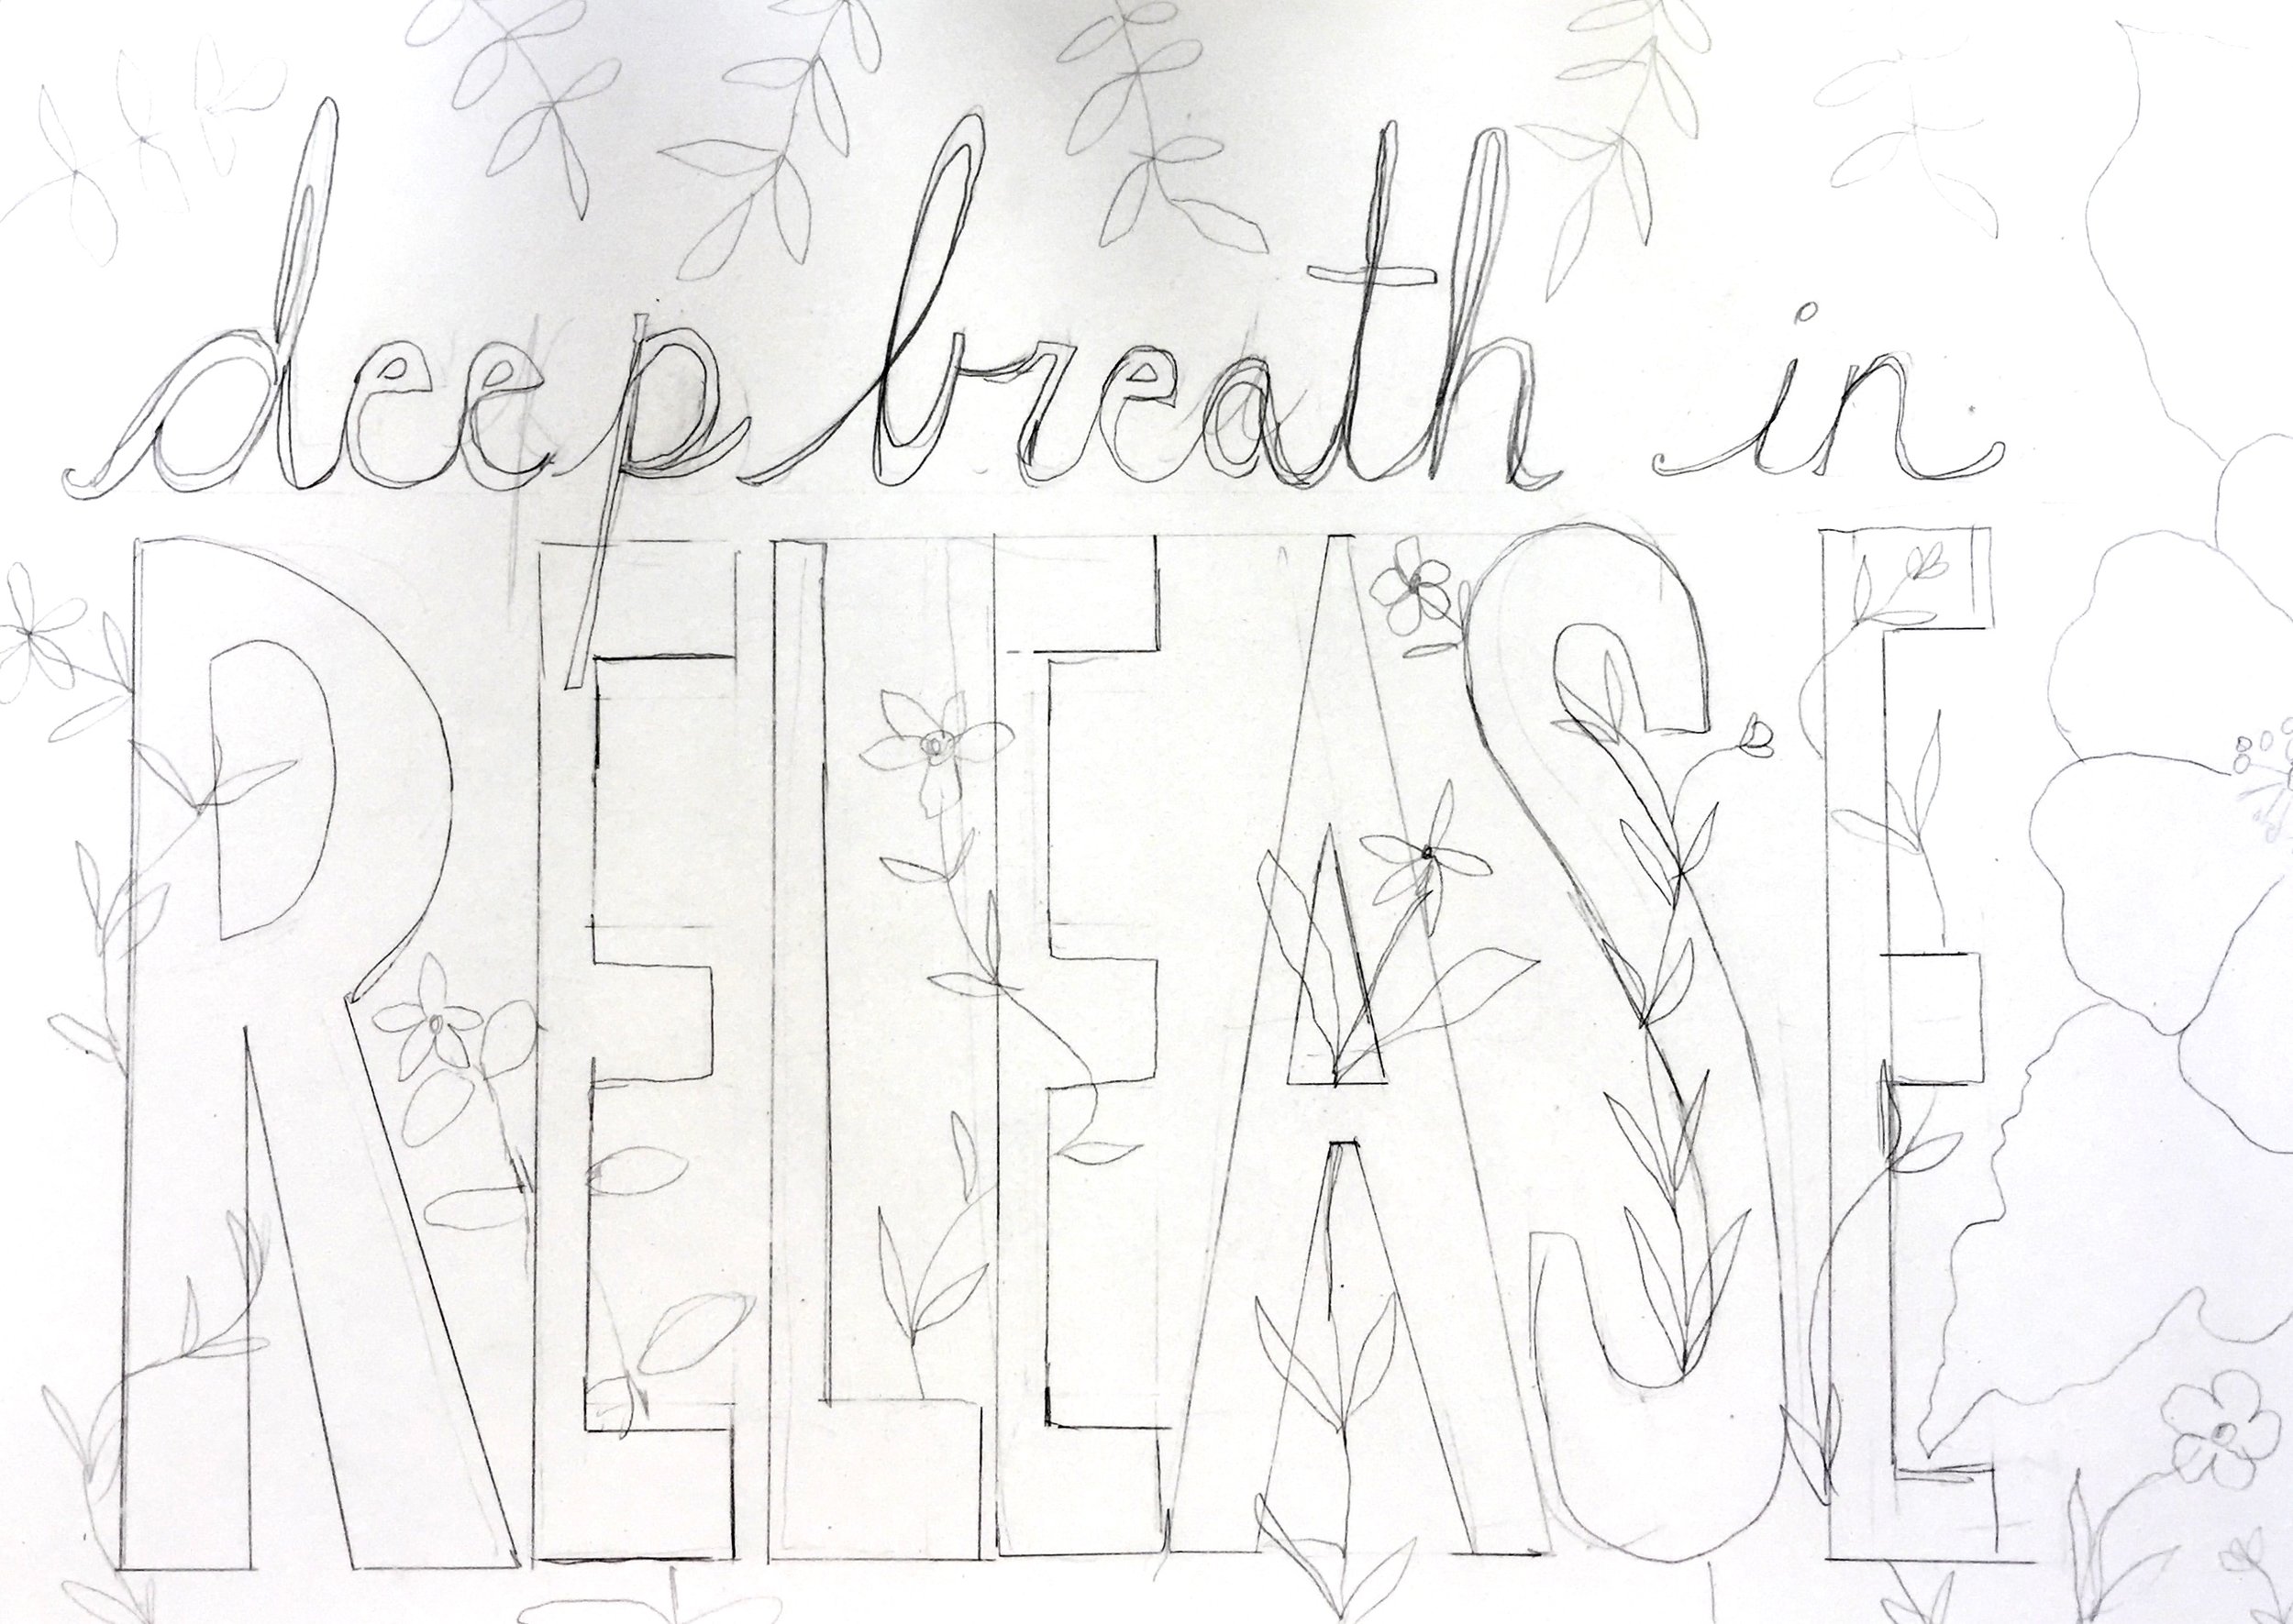 deep breath in
RELEASE